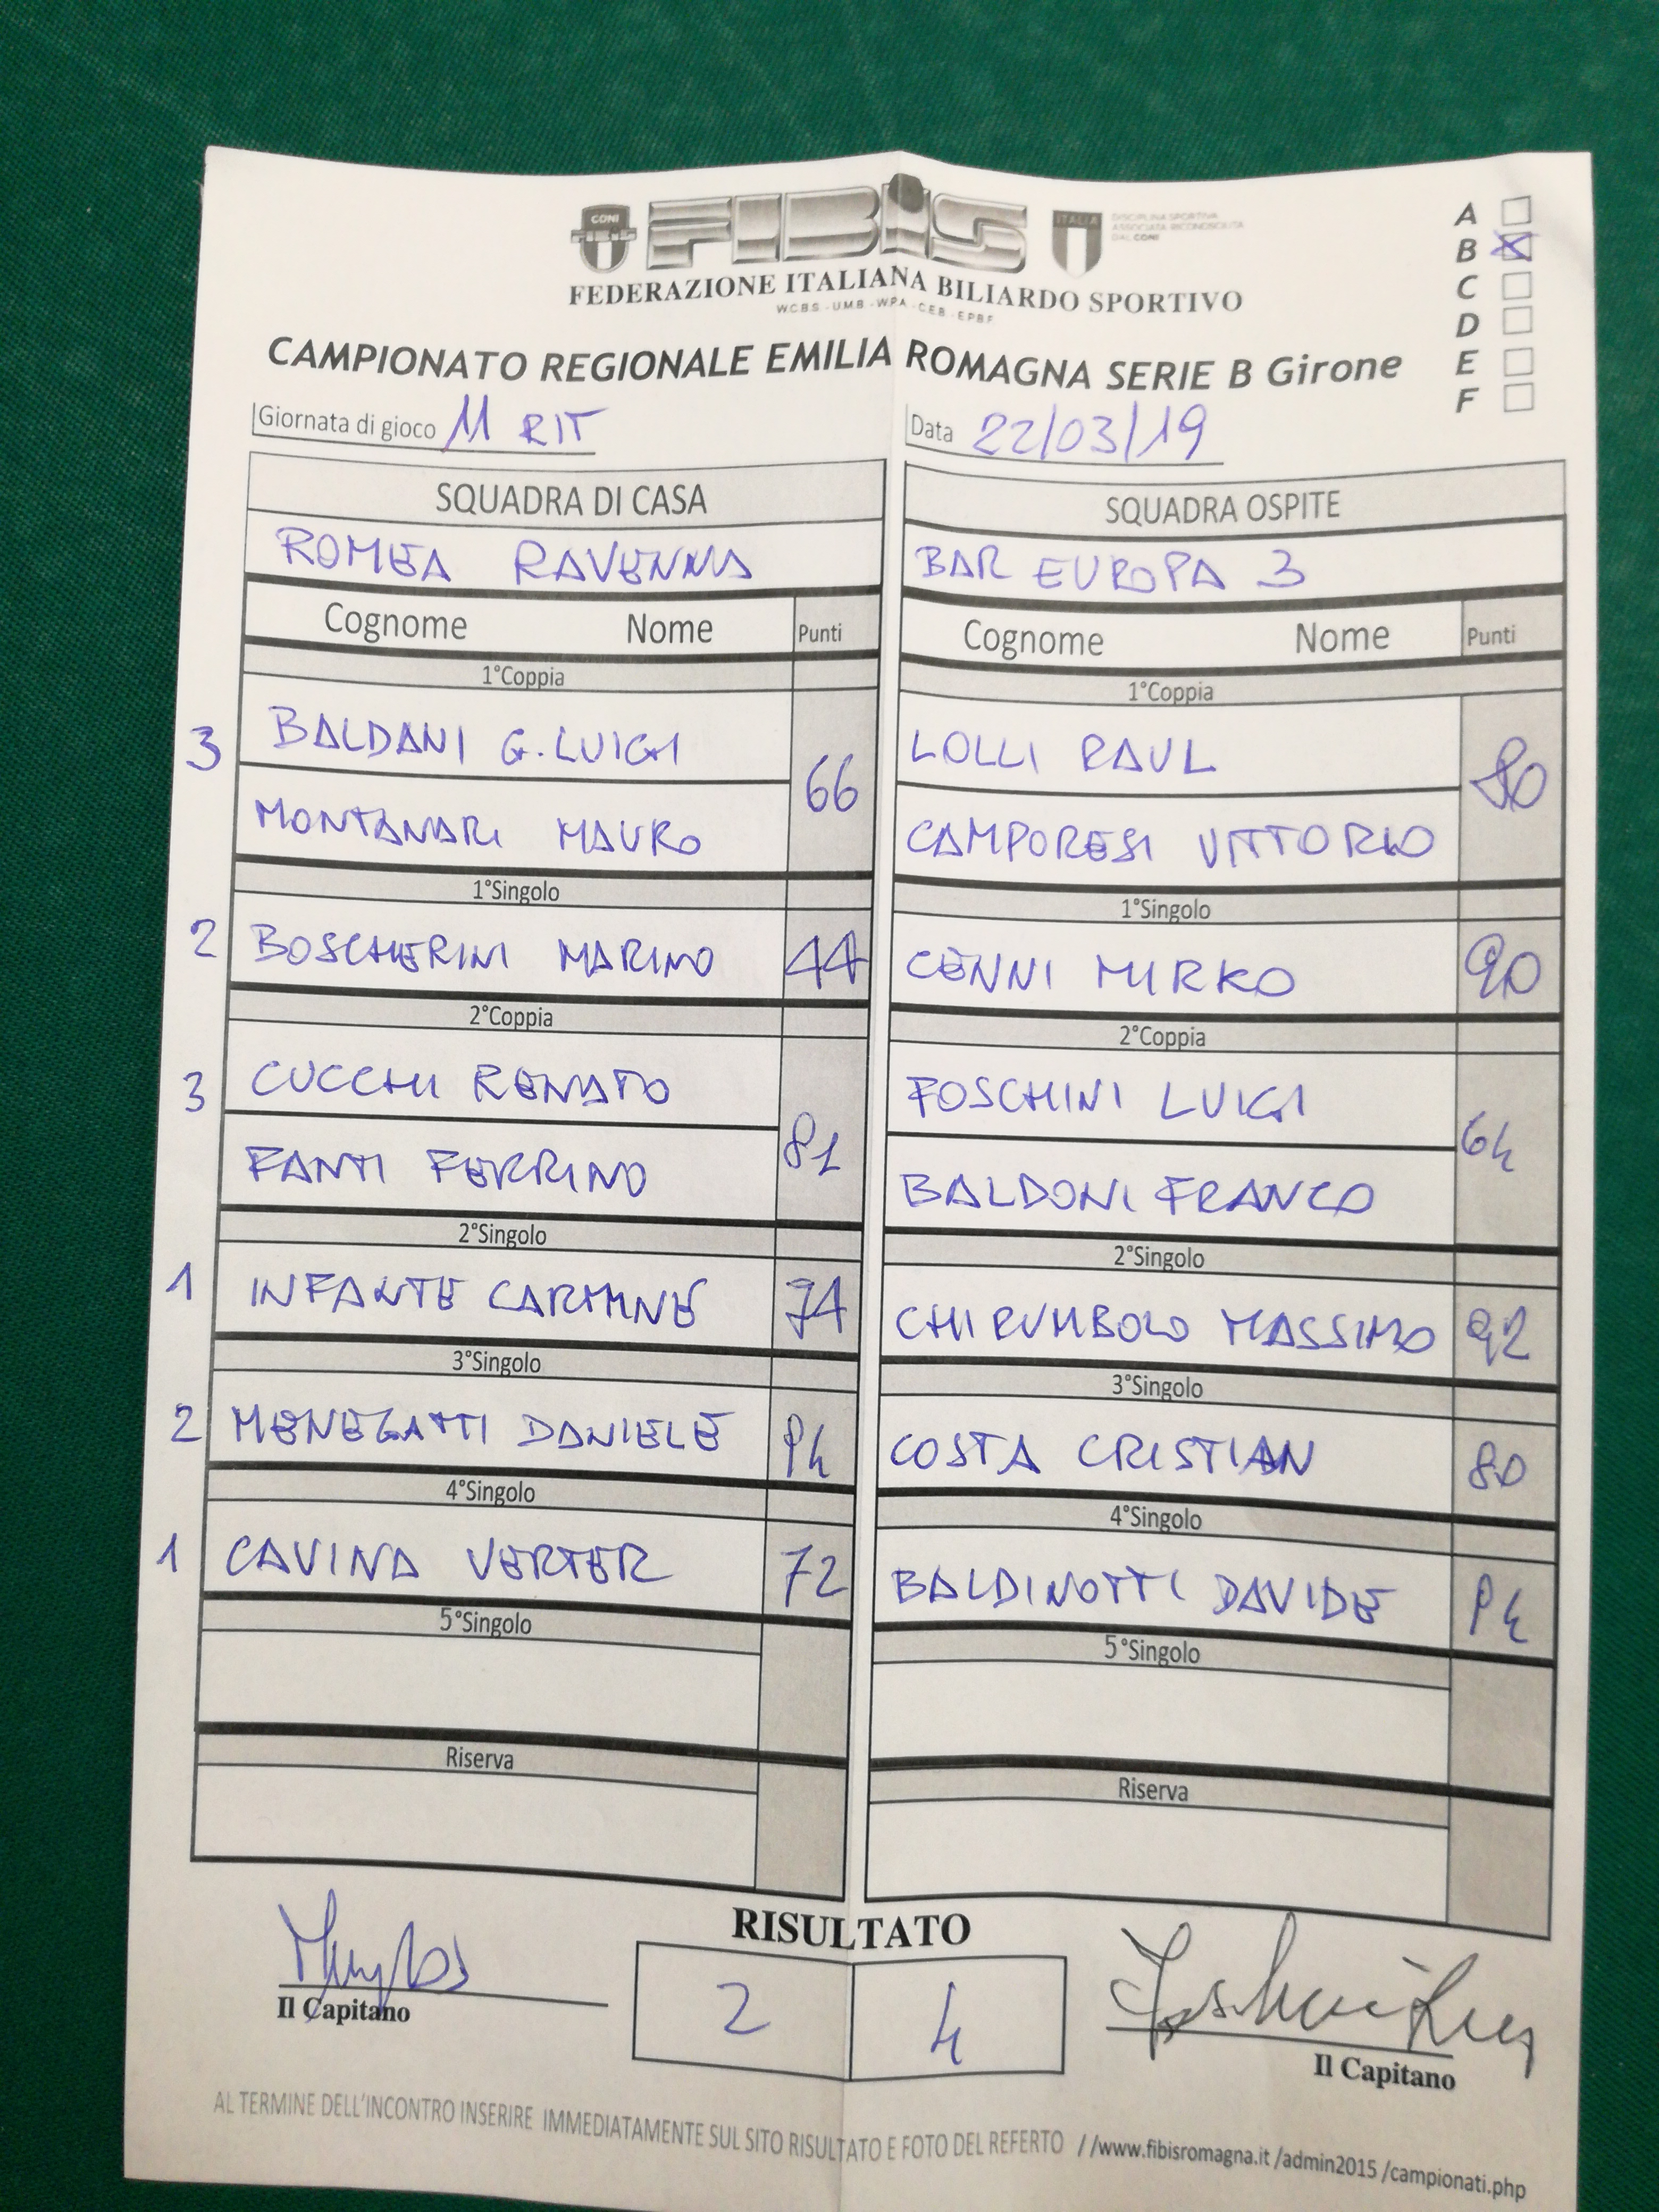 CONI
FIBiS
ITALIA
DISCIPLINA SPORTIVA
ASSOCIATA RICONOSCIUTA
DAL CONI
FEDERAZIONE ITALIANA BILIARDO SPORTIVO
WCBS - UMB - WPA - CEB - EPBF
A
B X
C
D
E
F
CAMPIONATO REGIONALE EMILIA ROMAGNA SERIE B Girone
Giornata di gioco 11 RIT
Data 22/03/19
SQUADRA DI CASA
SQUADRA OSPITE
ROMEA RAVENNA
BAR EUROPA 3
Cognome Nome Punti
Cognome Nome Punti
1°Coppia
1°Coppia
3 BALDANI G. LUIGI
LOLLI RAUL
66
80
MONTANARI MAURO
CAMPORESI VITTORIO
1°Singolo
1°Singolo
2 BOSCHERINI MARINO 44
CENNI MIRKO 90
2°Coppia
2°Coppia
3 CUCCHI RENATO
FOSCHINI LUIGI
81
64
FANTI FERRINO
BALDONI FRANCO
2°Singolo
2°Singolo
1 INFANTE CARMINE 74
CHIRUMBOLO MASSIMO 92
3°Singolo
3°Singolo
2 MENEGATTI DANIELE 84
COSTA CRISTIAN 80
4°Singolo
4°Singolo
1 CAVINA VERTER 72
BALDINOTTI DAVIDE 84
5°Singolo
5°Singolo
Riserva
Riserva
RISULTATO
2 4
Il Capitano
Il Capitano
AL TERMINE DELL'INCONTRO INSERIRE IMMEDIATAMENTE SUL SITO RISULTATO E FOTO DEL REFERTO //www.fibisromagna.it /admin2015 /campionati.php